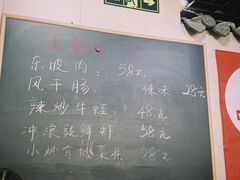 东坡肉: 58元
风干肠 辣味 28元
辣炒牛蛙 48元
冲浪豉鲜虾 58元
小炒有机菜花 28元